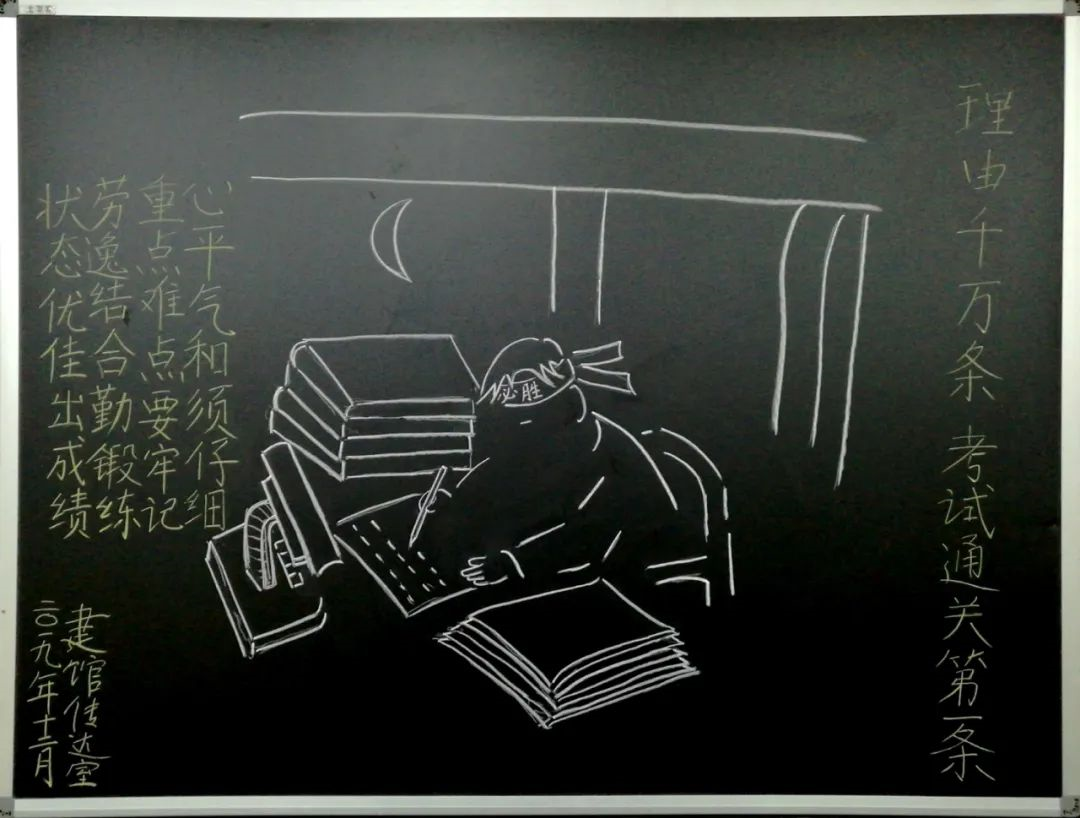 理由千万条 考试通关第一条
必胜
心平气和须仔细
重点难点要牢记
劳逸结合勤锻练
状态优佳出成绩
建馆传达室
二〇一九年十二月